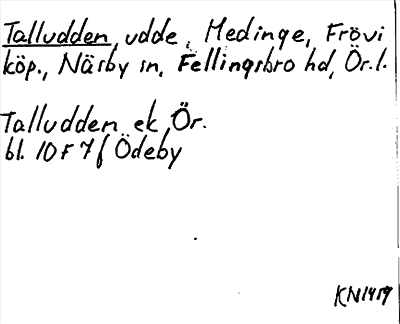 Talludden, udde, Medinge, Frövi
köp., Näsby sn, Fellingsbro hd, Ör.l.
Talludden ek, Ör.
bl. 10F 7f Ödeby
KN1419